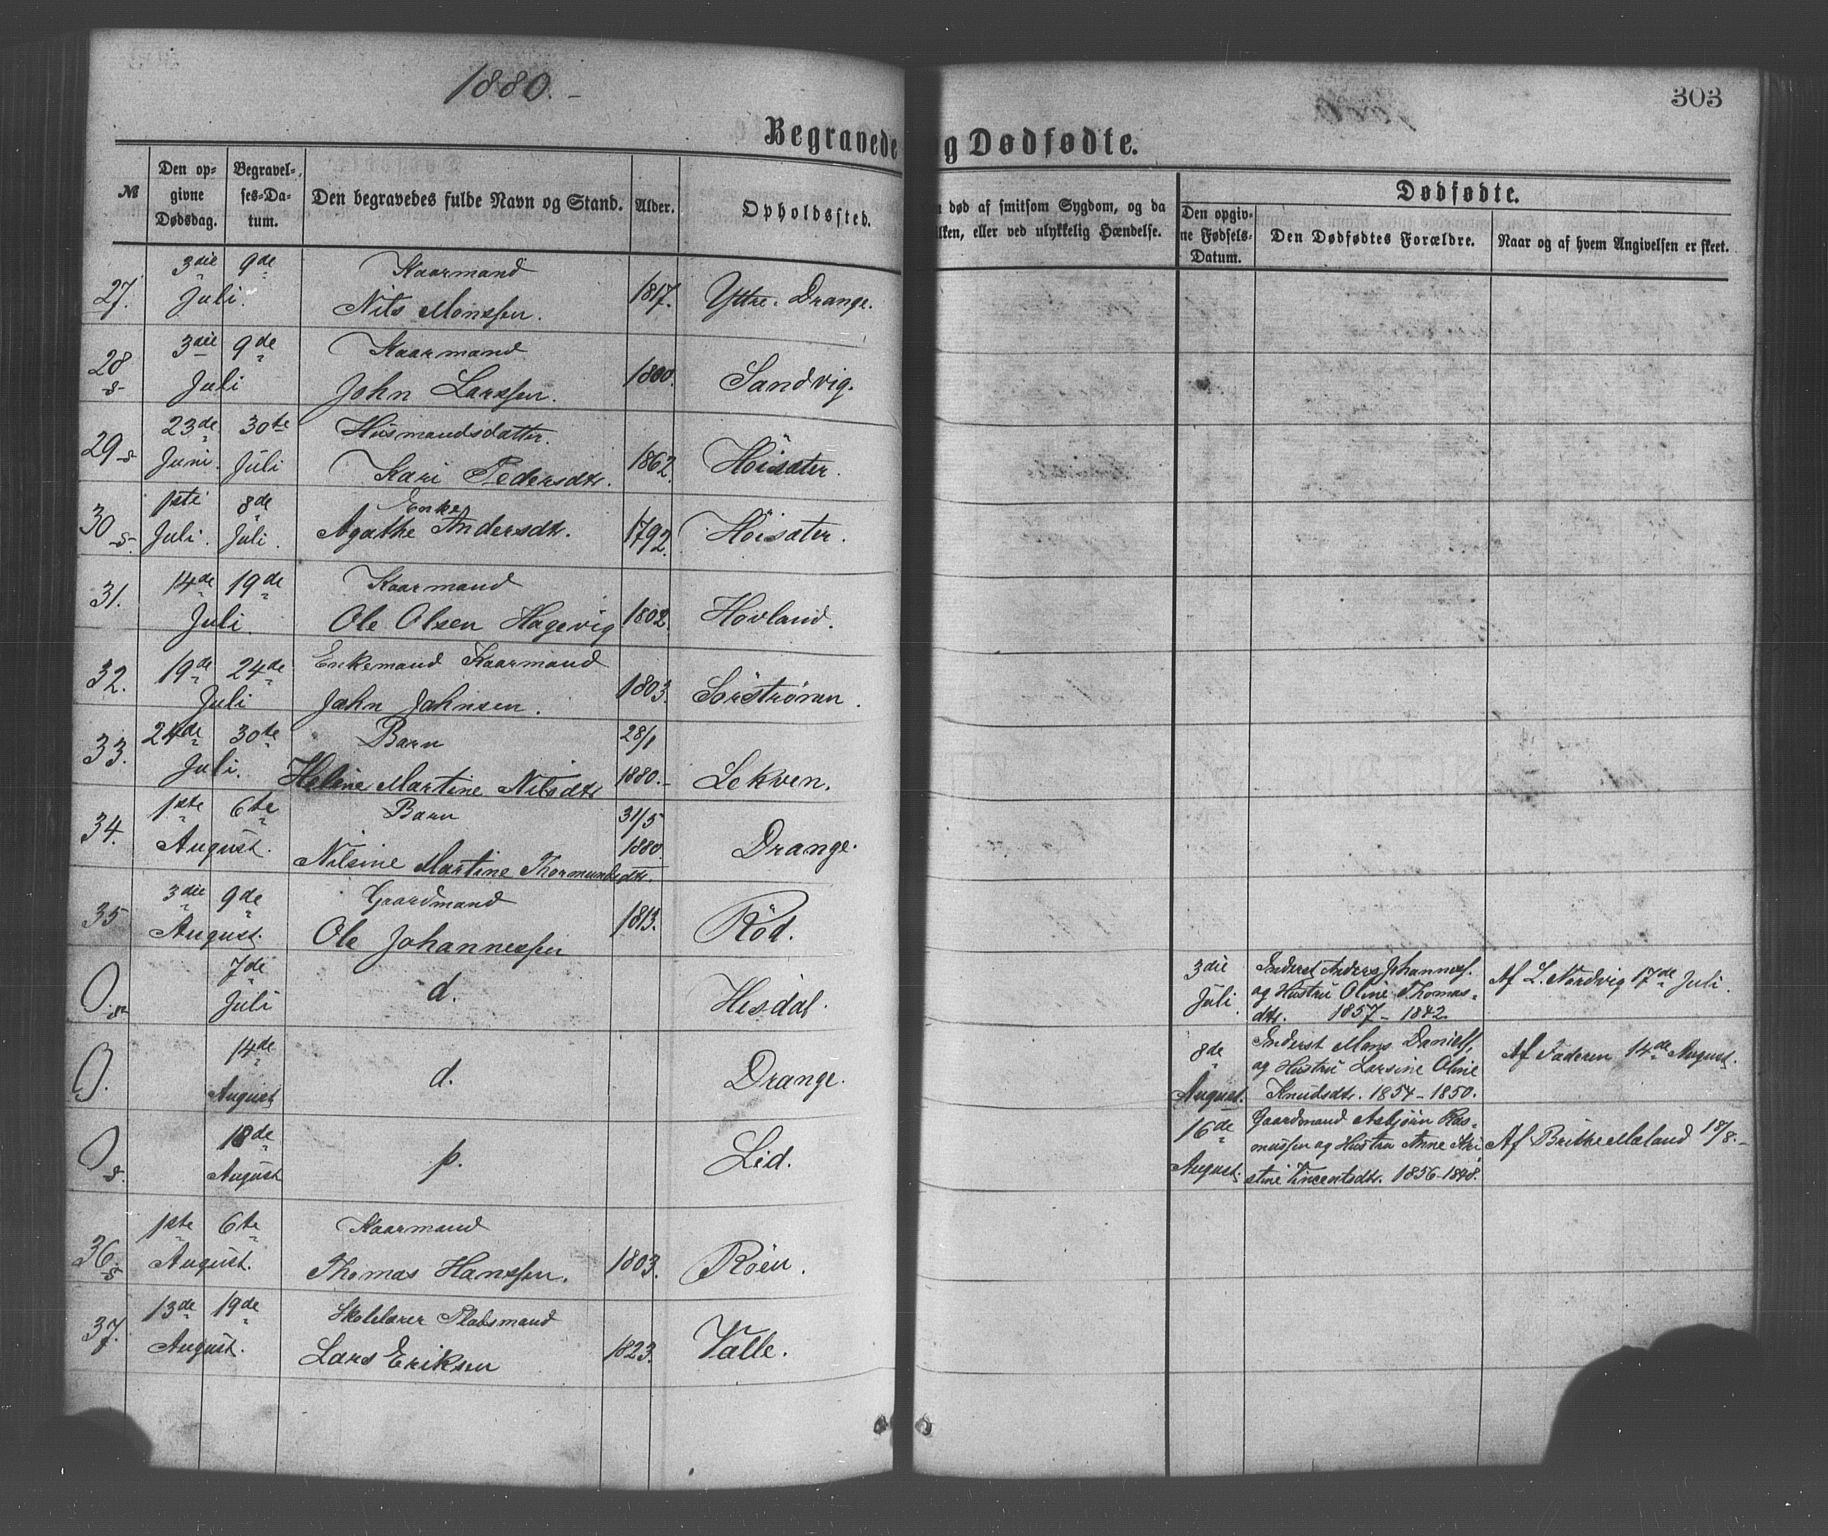 1880.-
303
Begravede og Dødfødte.
№
Den opgivne Dødsdag.
Begravelses-Datum.
Den begravedes fulde Navn og Stand.
Alder.
Opholdssted.
død af smitsom Sygdom, og da
ilken, eller ved ulykkelig Hændelse.
Dødfødte.
Den opgivne Fødsels-Datum.
Den Dødfødtes Forældre.
Naar og af hvem Angivelsen er skeet.
27. 3die 9de Juli. Kaarmand
Nils Monssen. 1817. Yttre. Drange.
28 3die 9de Juli Kaarmand
John Larssen. 1800. Sandvig.
29 23de Juni. 30te Juli Husmandsdatter.
Kari Pedersdtr. 1862. Höisæter.
30 1ste Juli. 8de Juli. Enke
Agathe Andersdtr. 1792. Höisæter.
31. 14de 19de Juli. Kaarmand
Ole Olsen Hagevig 1802. Hovland.
32. 19de 24de Juli Enkemand Kaarmand
John Johnsen. 1803. Sörströnen.
33. 24de 30te Juli. Barn 28/1
Heline Martine Nilsdtr 1880.- Lekven.
34. 1ste 6te August. Barn 31/5 1880.
Nilsine Martine Thormundsdtr. Drange.
35 3die 9de August. Gaardmand
Ole Johannessen 1813. Röd.
0. 7de Juli d. Hesdal.
3die Juli. Inderst Anders Johanness.
og Hustru Oline Thomas-
dtr. 1857 - 1842.
Af L. Nordvig 17de Juli.
0. 14de August d. Drange.
8de August. Inderst Mons Daniels.
og Hustru Larsine Oline
Knudsdtr. 1854 - 1850.
Af Faderen 14de August.
0 18de August p. Lid.
16de August. Gaardmand Asbjörn Ras-
mussen og Hustru Anne Kri-
stine Vincentsdtr. 1856-1848.
Af Brithe Mæland 18/8.-
36. 1ste 6te August. Kaarmand
Thomas Hanssen. 1803. Röen.
37. 13de 19de August. Skolelærer Pladsmand
Lars Eriksen 1823. Valle.